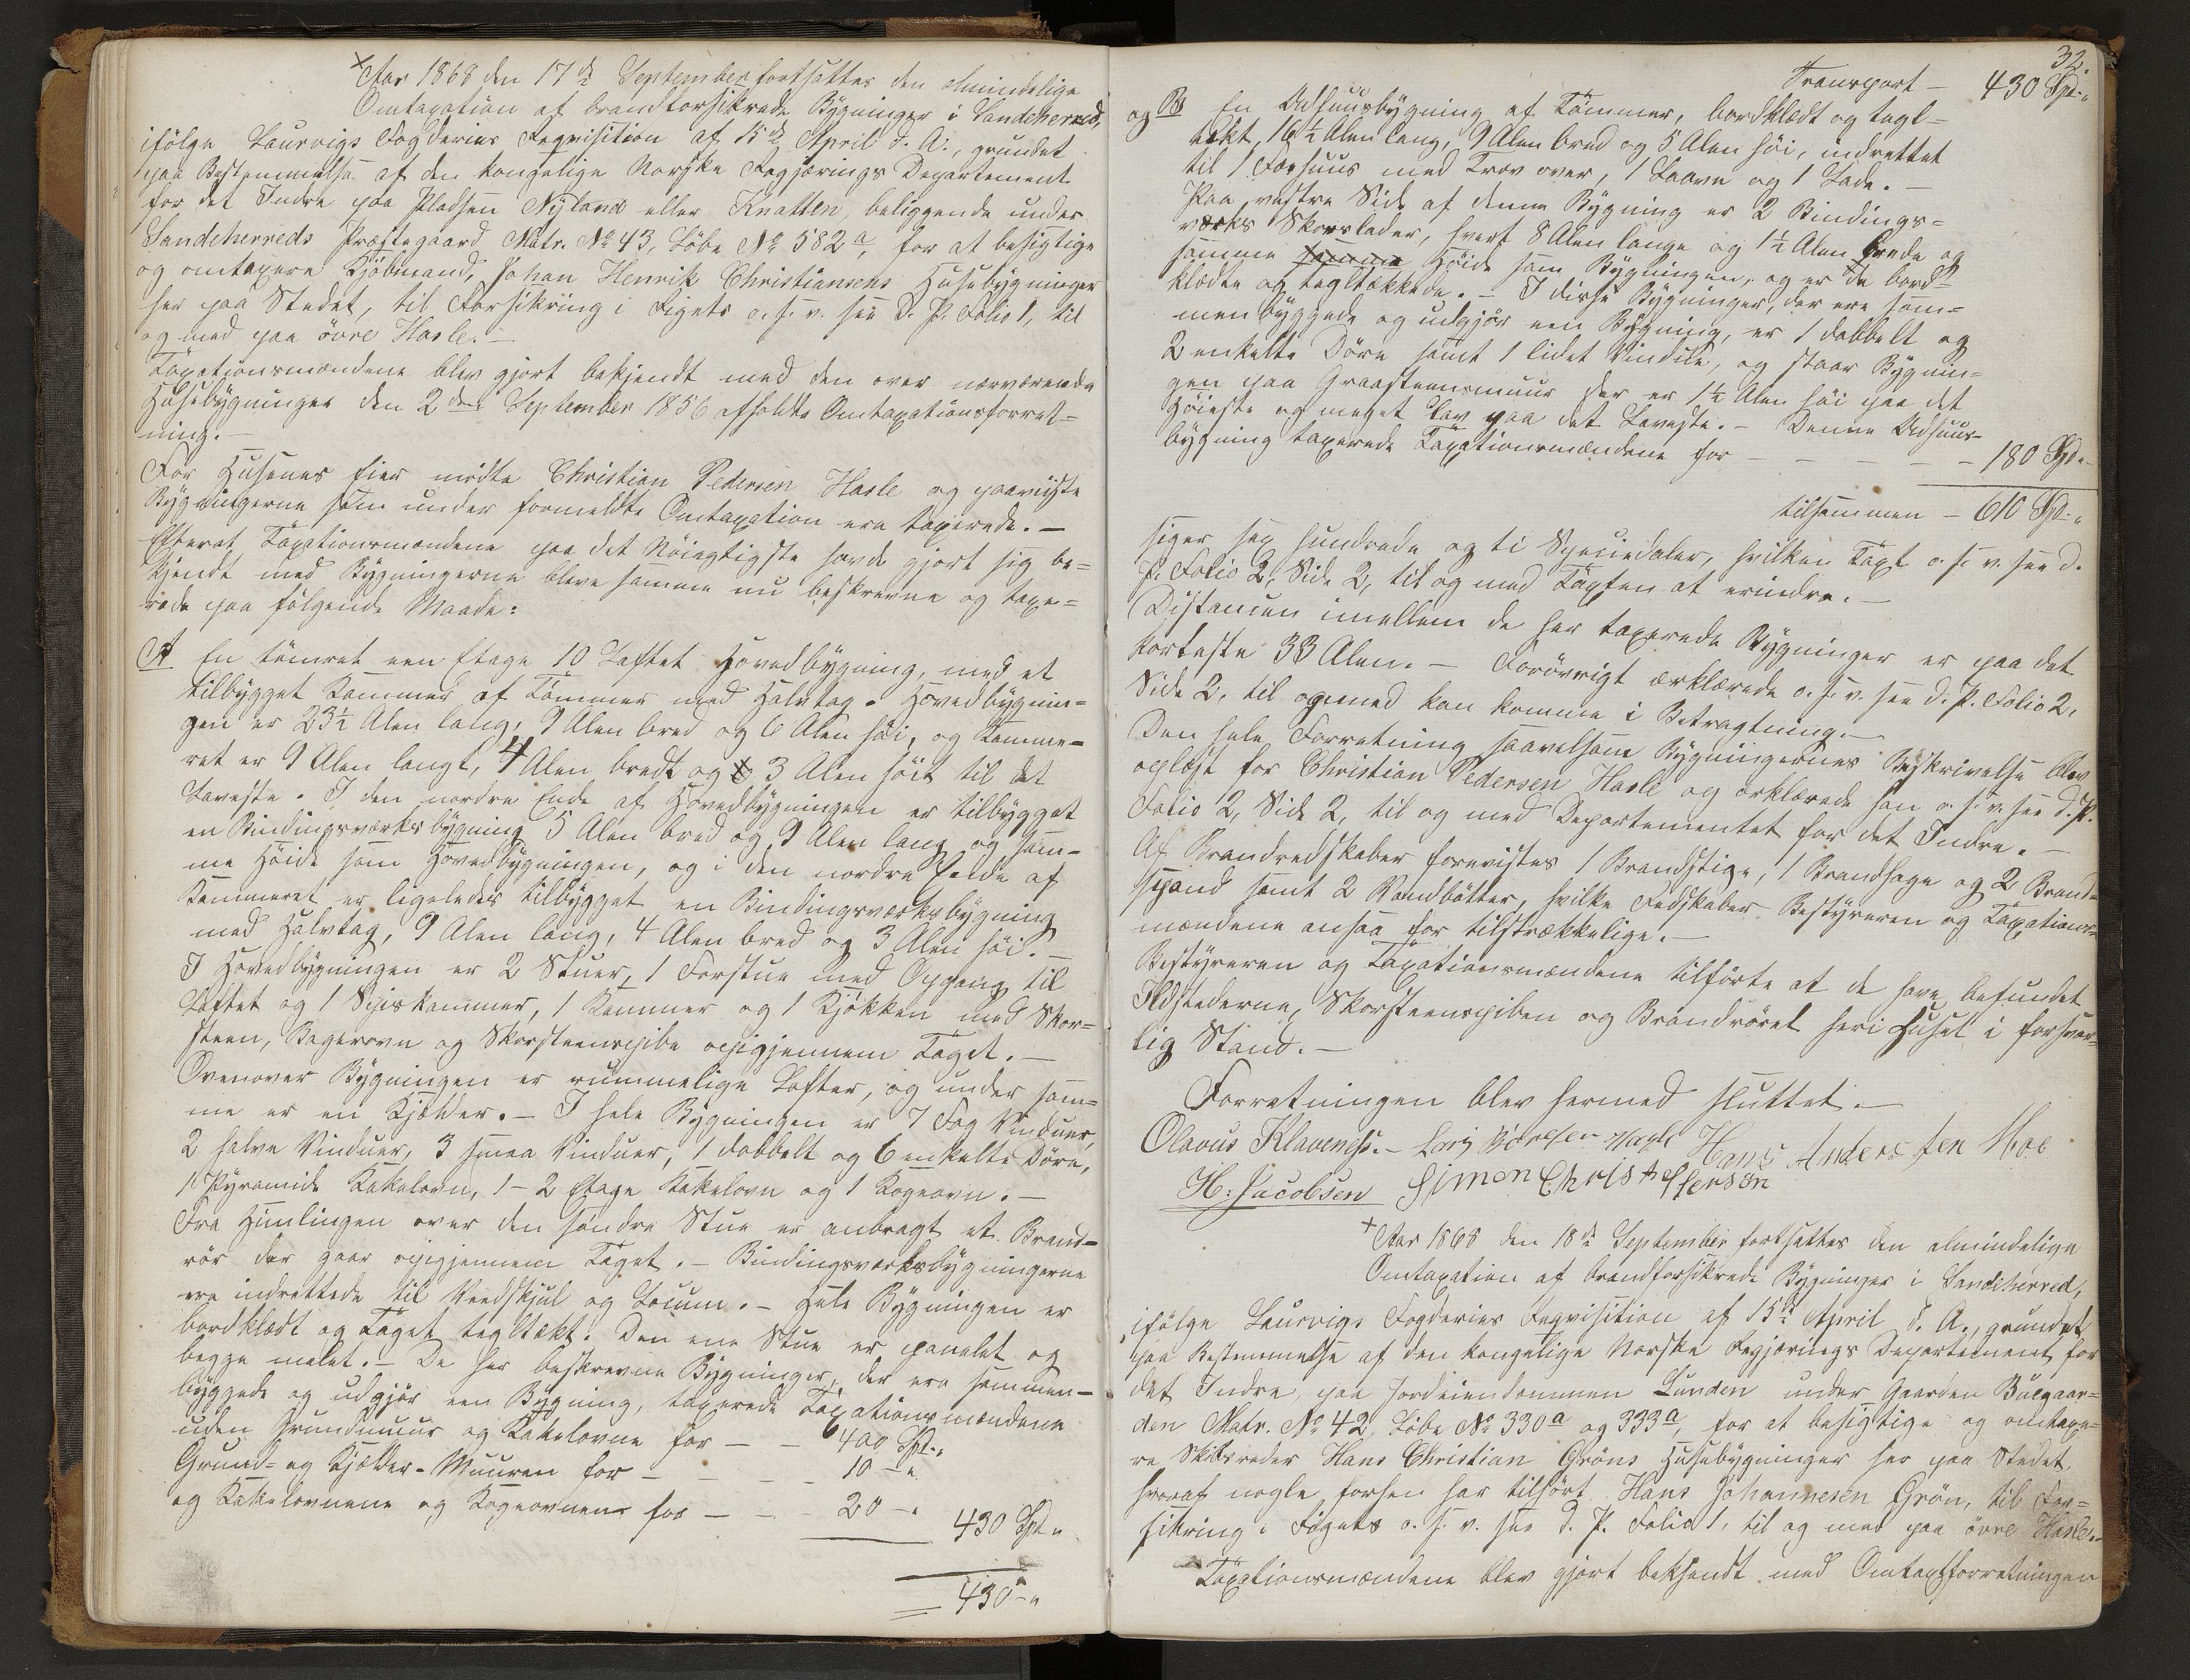 ×Aar 1868 den 17de September fortsattes den almindelige
Omtaxation af brandforsikrede Bygninger i Sandeherred,
ifölge Laurvigs Fogderies Reqvisition af 15de April d. A., grundet
paa Bestemmelse af den kongelige Norske Regjerings Departement
for det Indre paa Pladsen Nyland eller Knatten, beliggende under
Sandeherreds Præstegaard Matr. No 43, Löbe No 582a, for at besigtige
og omtaxere Kjöbmand, Johan Henrik Christiansens Husebygninger
her paa Stedet, til Forsikring i Rigets o. s. v. see d. P. Folio 1, til
og med paa övre Hasle.—
Taxationsmændene blev gjort bekjendt med den over nærværende
Husebygninger den 2den September 1856 afholdte Omtaxationsforret-
ning.—
For Husenes Eier mödte Christian Pedersen Hasle og paaviiste
Bygningerne som under formeldte Omtaxation ere taxerede.—
Efterat Taxationsmændene paa det Nöiagtigste havde gjort sig be-
kjendt med Bygningerne bleve samme nu beskrevne og taxe-
rede paa fölgende Maade:
A En tömret een Etage 10 Laftet Hovedbygning, med et
tilbygget Kammer af Tömmer med Halvtag. Hovedbygnin-
gen er 23½ Alen lang, 9 Alen bred og 6 Alen höi, og Kamme-
ret er 9 Alen langt, 4 Alen bredt og 3 Alen höit til det
Laveste. I den nordre Ende af Hovedbygningen er tilbygget
en Bindingsværksbygning 5 Alen bred og 9 Alen lang og sam-
me Höide som Hovedbygningen, og i den nordre Ende af
Kammeret er ligeledes tilbygget en Bindingsværksbygning
med Halvtag, 9 Alen lang, 4 Alen bred og 3 Alen höi.—
I Hovedbygningen er 2 Stuer, 1 Forstue med Opgang til
Loftet og 1 Spiskammer, 1 Kammer og 1 Kjökken med Skor-
steen, Bagerovn og Skorsteenspibe opigjennem Taget.—
Ovenover Bygningen er rummelige Lofter, og under sam-
me er en Kjelder.— I hele Bygningen er 7 Fag Vinduer,
2 halve Vinduer, 3 smaa Vinduer, 1 dobbelt og 6 enkelte Döre,
1 Pyramide Kakelovn, 1–2 Etage Kakelovn og 1 Kogeovn.—
Fra Himlingen over den söndre Stue er anbragt et Brand-
rör der gaar opigjennem Taget.— Bindingsværksbygningerne
ere indrettede til Vedskjul og Locum.— Hele Bygningen er
bordklædt og Taget tegltækt. Den ene Stue er panelet og
begge malet.— De her beskrevne Bygninger, der ere sammen-
byggede og udgjör een Bygning, taxerede Taxationsmændene
uden Grundmuur og Kakelovne for — — 400 Spd.„
Grund- og Kjelder-Muuren for — — — 10 –„
og Kakelovnene og Kogeovnen for — — — 20 –„
430 Spd „
430 –„
32.
Transport — 430 Spd.„
og B En Udhuusbygning af Tömmer, bordklædt og tegl-
tækt, 16½ Alen lang, 9 Alen bred og 5 Alen höi, indrettet
til 1 Fæhuus med Trev over, 1 Laave og 1 Lade.—
Paa vestre Side af denne Bygning er 2 Bindings-
værks Skorslader, hvert 8 Alen lange og 1½ Alen brede og
samme samme Höide som Bygningen, og er de bord-
klædte og tegltækkede.— I disse Bygninger, der ere sam-
menbyggede og udgjör een Bygning, er 1 dobbelt og
2 enkelte Döre samt 1 lidet Vindue, og staar Bygnin-
gen paa Graasteensmuur der er 1½ Alen höi paa det
Höieste og meget lav paa det Laveste.— Denne Udhuus-
bygning taxerede Taxationsmændene for — — — — — 180 Spd.„
tilsammen — 610 Spd.„
siger sex hundrede og ti Speciedaler, hvilken Taxt o. s. v. see d.
P. Folio 2, Side 2, til og med Taxten at erindre.—
Distancen imellem de her taxerede Bygninger er paa det
korteste 33 Alen.— Forövrigt erklærede o. s. v. see d. P. Folio 2,
Side 2, til og med kan komme i Betragtning.—
Den hele Forretning saavelsom Bygningernes Beskrivelse blev
oplæst for Christian Pedersen Hasle og erklærede han o. s. v. see d. P.
Folio 2, Side 2, til og med Departementet for det Indre.—
Af Brandredskaber forevistes 1 Brandstige, 1 Brandhage og 2 Brand-
spand samt 2 Vandbötter, hvilke Redskaber Bestyreren og Taxations-
mændene ansaa for tilstrækkelige.—
Bestyreren og Taxationsmændene tilförte at de have befundet
Ildstederne, Skorsteenspiben og Brandröret heri Huset i forsvar-
lig Stand.—
Forretningen blev hermed sluttet.—
Olavus Klavenesß.— Lars Hansen Hans Anderssen Moe
H: Jacobsen Simon Christoffersön
×Aar 1868 den 18de September fortsattes den almindelige
Omtaxation af brandforsikrede Bygninger i Sandeherred,
ifölge Laurvigs Fogderies Reqvisition af 15de April d. A., grundet
paa Bestemmelse af den kongelige Norske Regjerings Departement for
det Indre, paa Jordeiendommen Lunden under Gaarden Buegaar-
den Matr. No 42, Löbe No 330a og 333a, for at besigtige og omtaxe-
re Skibsreder Hans Christian Gröns Husebygninger her paa Stedet,
hvoraf nogle forhen har tilhört Hans Johannesen Grön, til For-
sikring i Rigets o. s. v. see d. P. Folio 1, til og med paa övre Hasle.—
Taxationsmændene blev gjort bekjendt med Omtaxtforretningen